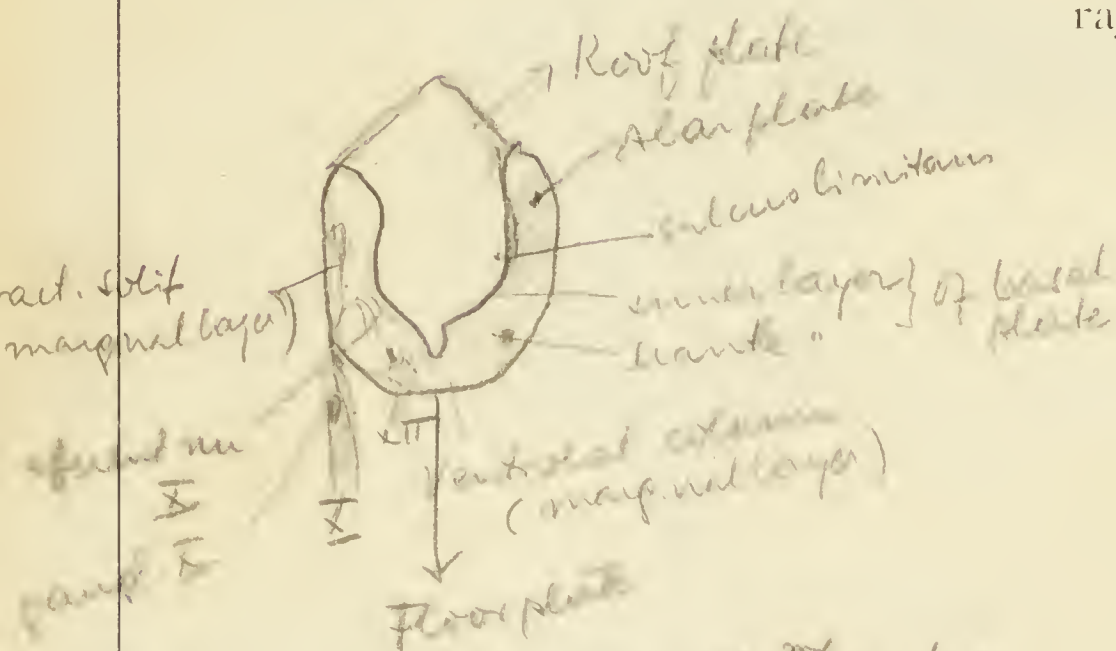 Roof plate
Alar plate
sulcus limitans
inner layer } of basal
mantle " plate
ract. solit
marginal layer)
efferent nu
X
gangl X
X
XII
ventral column
(marginal layer)
Floor plate